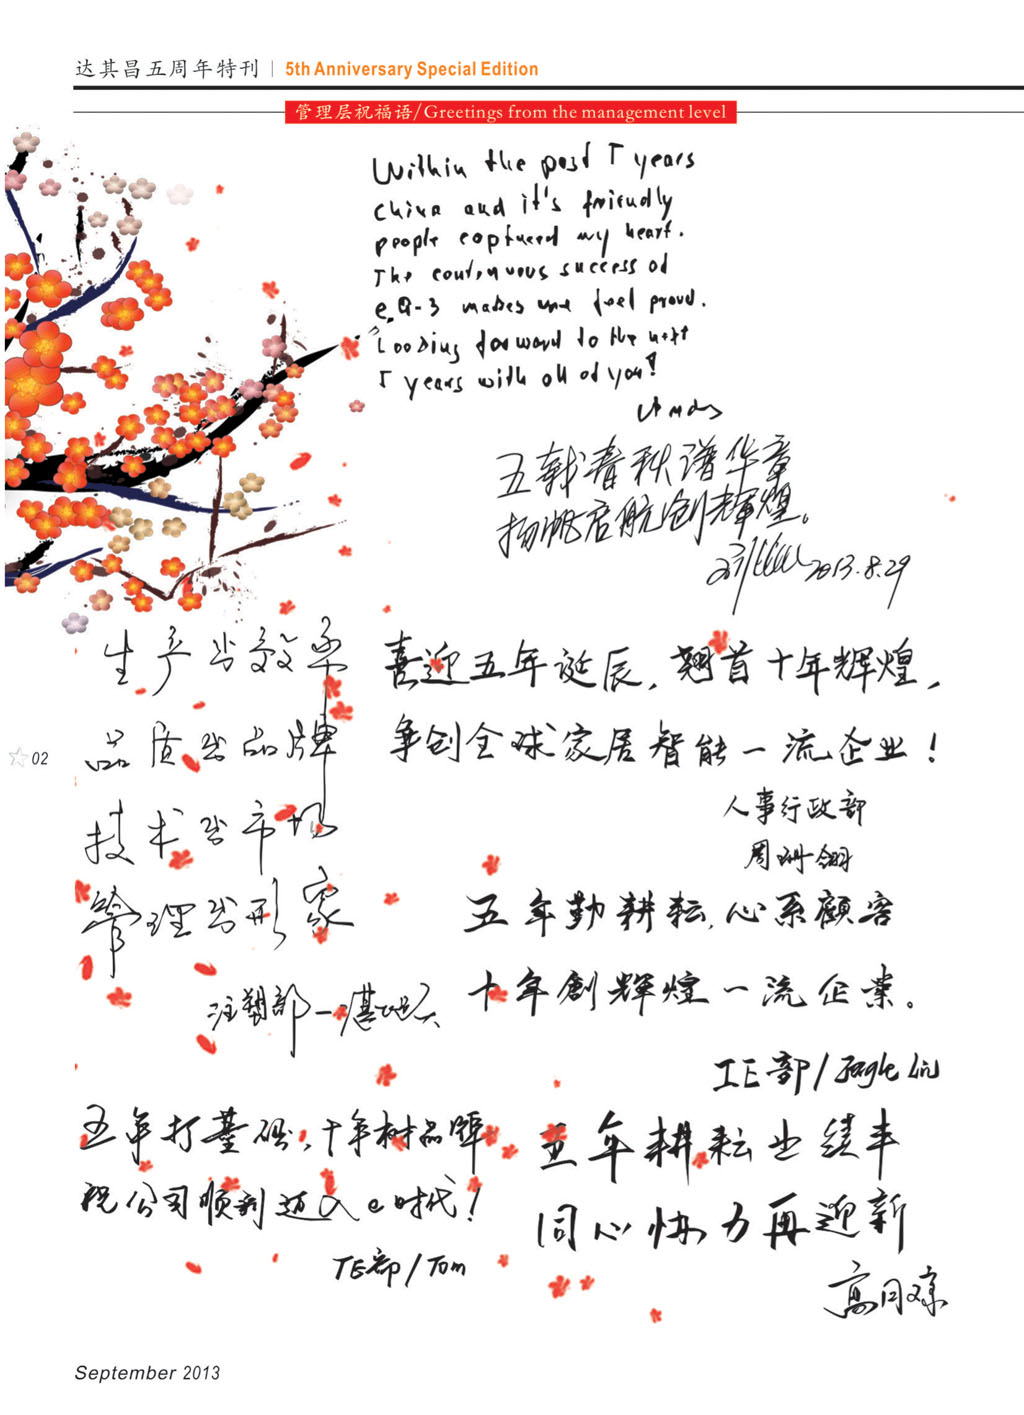 达其昌五周年特刊 | 5th Anniversary Special Edition
管理层祝福语/Greetings from the management level
Within the past 5 years
China and it's friendly
people captured my heart.
The continuous success of
e.Q-3 makes me feel proud.
Looking forward to the next
5 years with all of you!
五载春秋谱华章
扬帆启航创辉煌。
2013.8.29
生产出效率
品质出品牌
技术出市场
管理出形象
注塑部—
喜迎五年诞辰，翘首十年辉煌，
争创全球家居智能一流企业！
人事行政部
周珊翎
五年勤耕耘，心系顧客
十年創輝煌一流企業。
IE部/Eagle
五年打基础，十年树品牌
祝公司顺利迈入e时代！
TE部/Tom
五年耕耘出绩丰
同心协力再迎新
02
September 2013